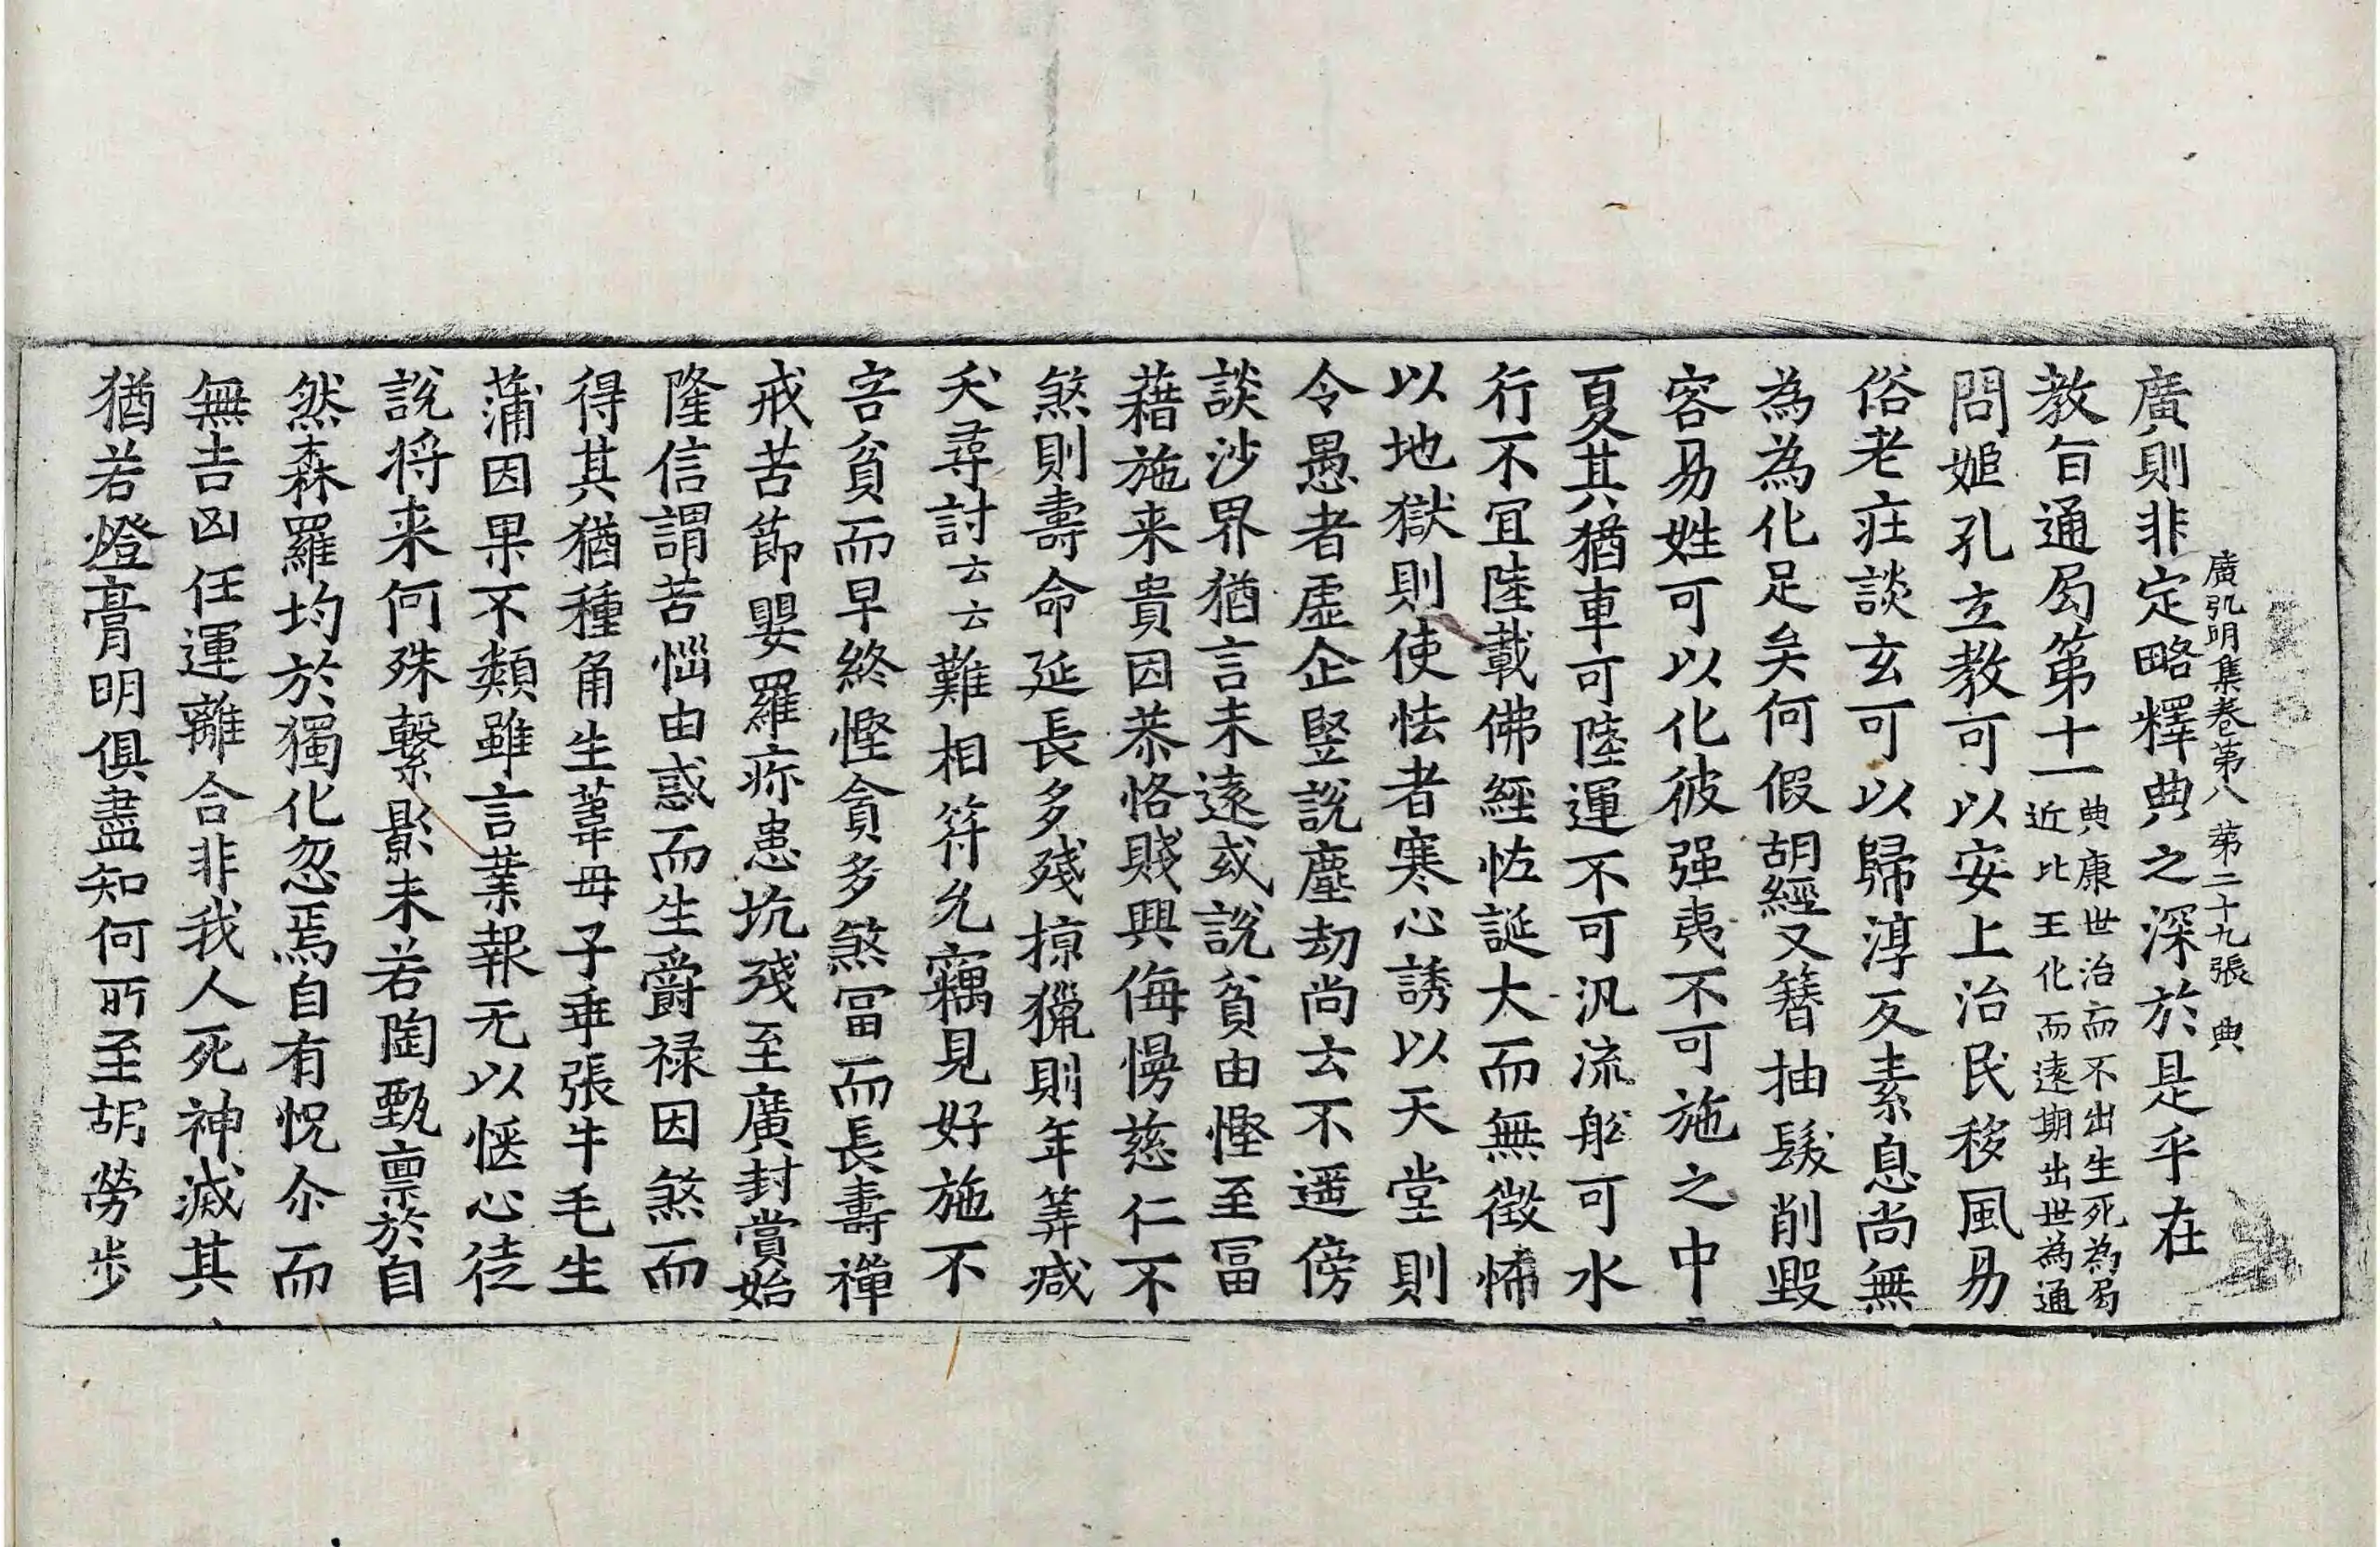 廣弘明集卷第八 第二十九張 典
廣則非定略釋典之深於是乎在
教旨通局第十一典康世治而不出生死為局近比王化而遠期出世為通
問姬孔立教可以安上治民移風易
俗老莊談玄可以歸淳反素息尚無
為為化足矣何假胡經又簪抽髮削毀
容易姓可以化彼强夷不可施之中
夏其猶車可陸運不可汎流舩可水
行不宜陸載佛經恠誕大而無徵怖
以地獄則使怯者寒心誘以天堂則
令愚者虛企竪說塵劫尚云不遥傍
談沙界猶言未遠或說貧由慳至冨
藉施来貴因恭恪賤興侮慢慈仁不
煞則壽命延長多殘掠獵則年筭减
夭尋討云云難相符允竊見好施不
害貧而早終慳貪多煞冨而長壽禪
戒苦節嬰羅疹患坑殘至廣封賞始
隆信謂苦惱由惑而生爵禄因煞而
得其猶種角生葦母子乖張牛毛生
蒲因果不類雖言業報无以愜心徒
說将来何殊繫影未若陶甄禀於自
然森羅均於獨化忽焉自有怳尒而
無吉凶任運離合非我人死神滅其
猶若燈膏明俱盡知何所至胡勞步